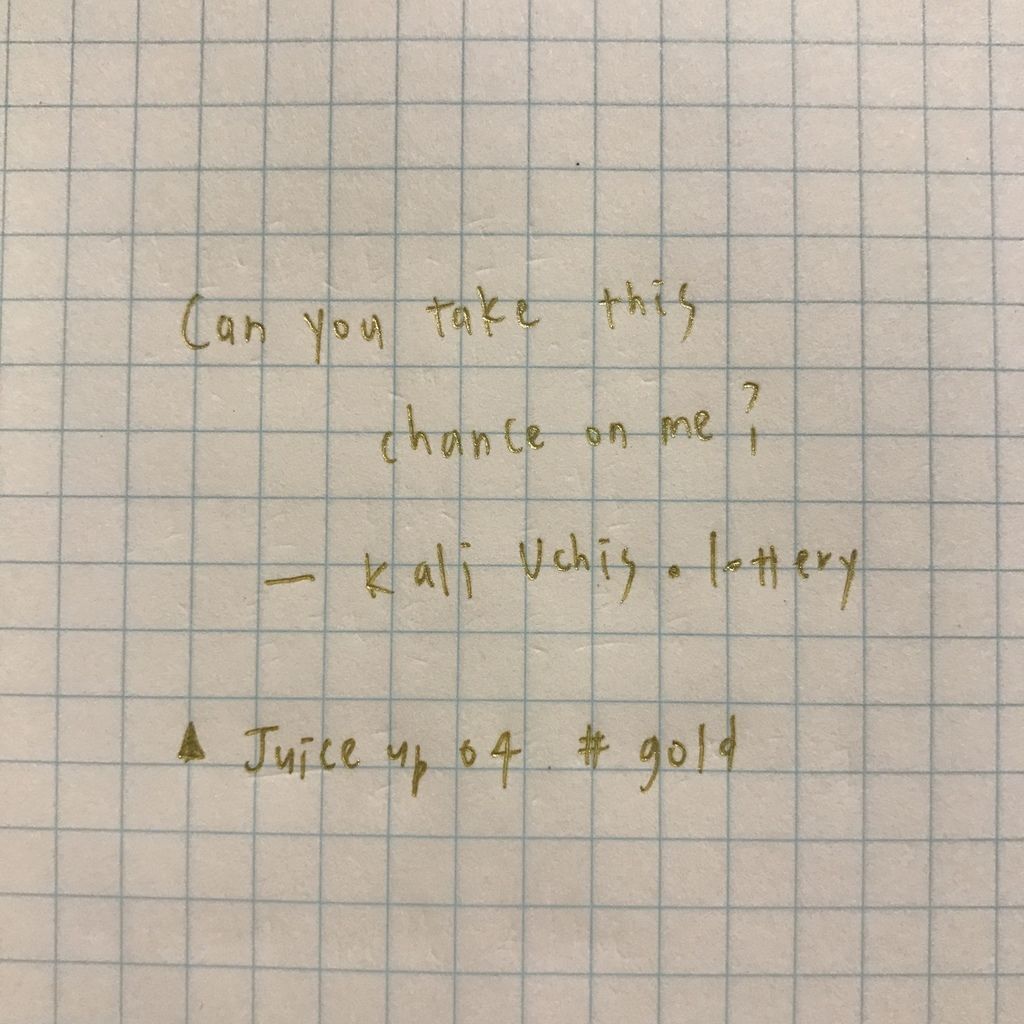 Can you take this
chance on me?
— Kali Uchis . lottery
▲ Juice up 04 # gold